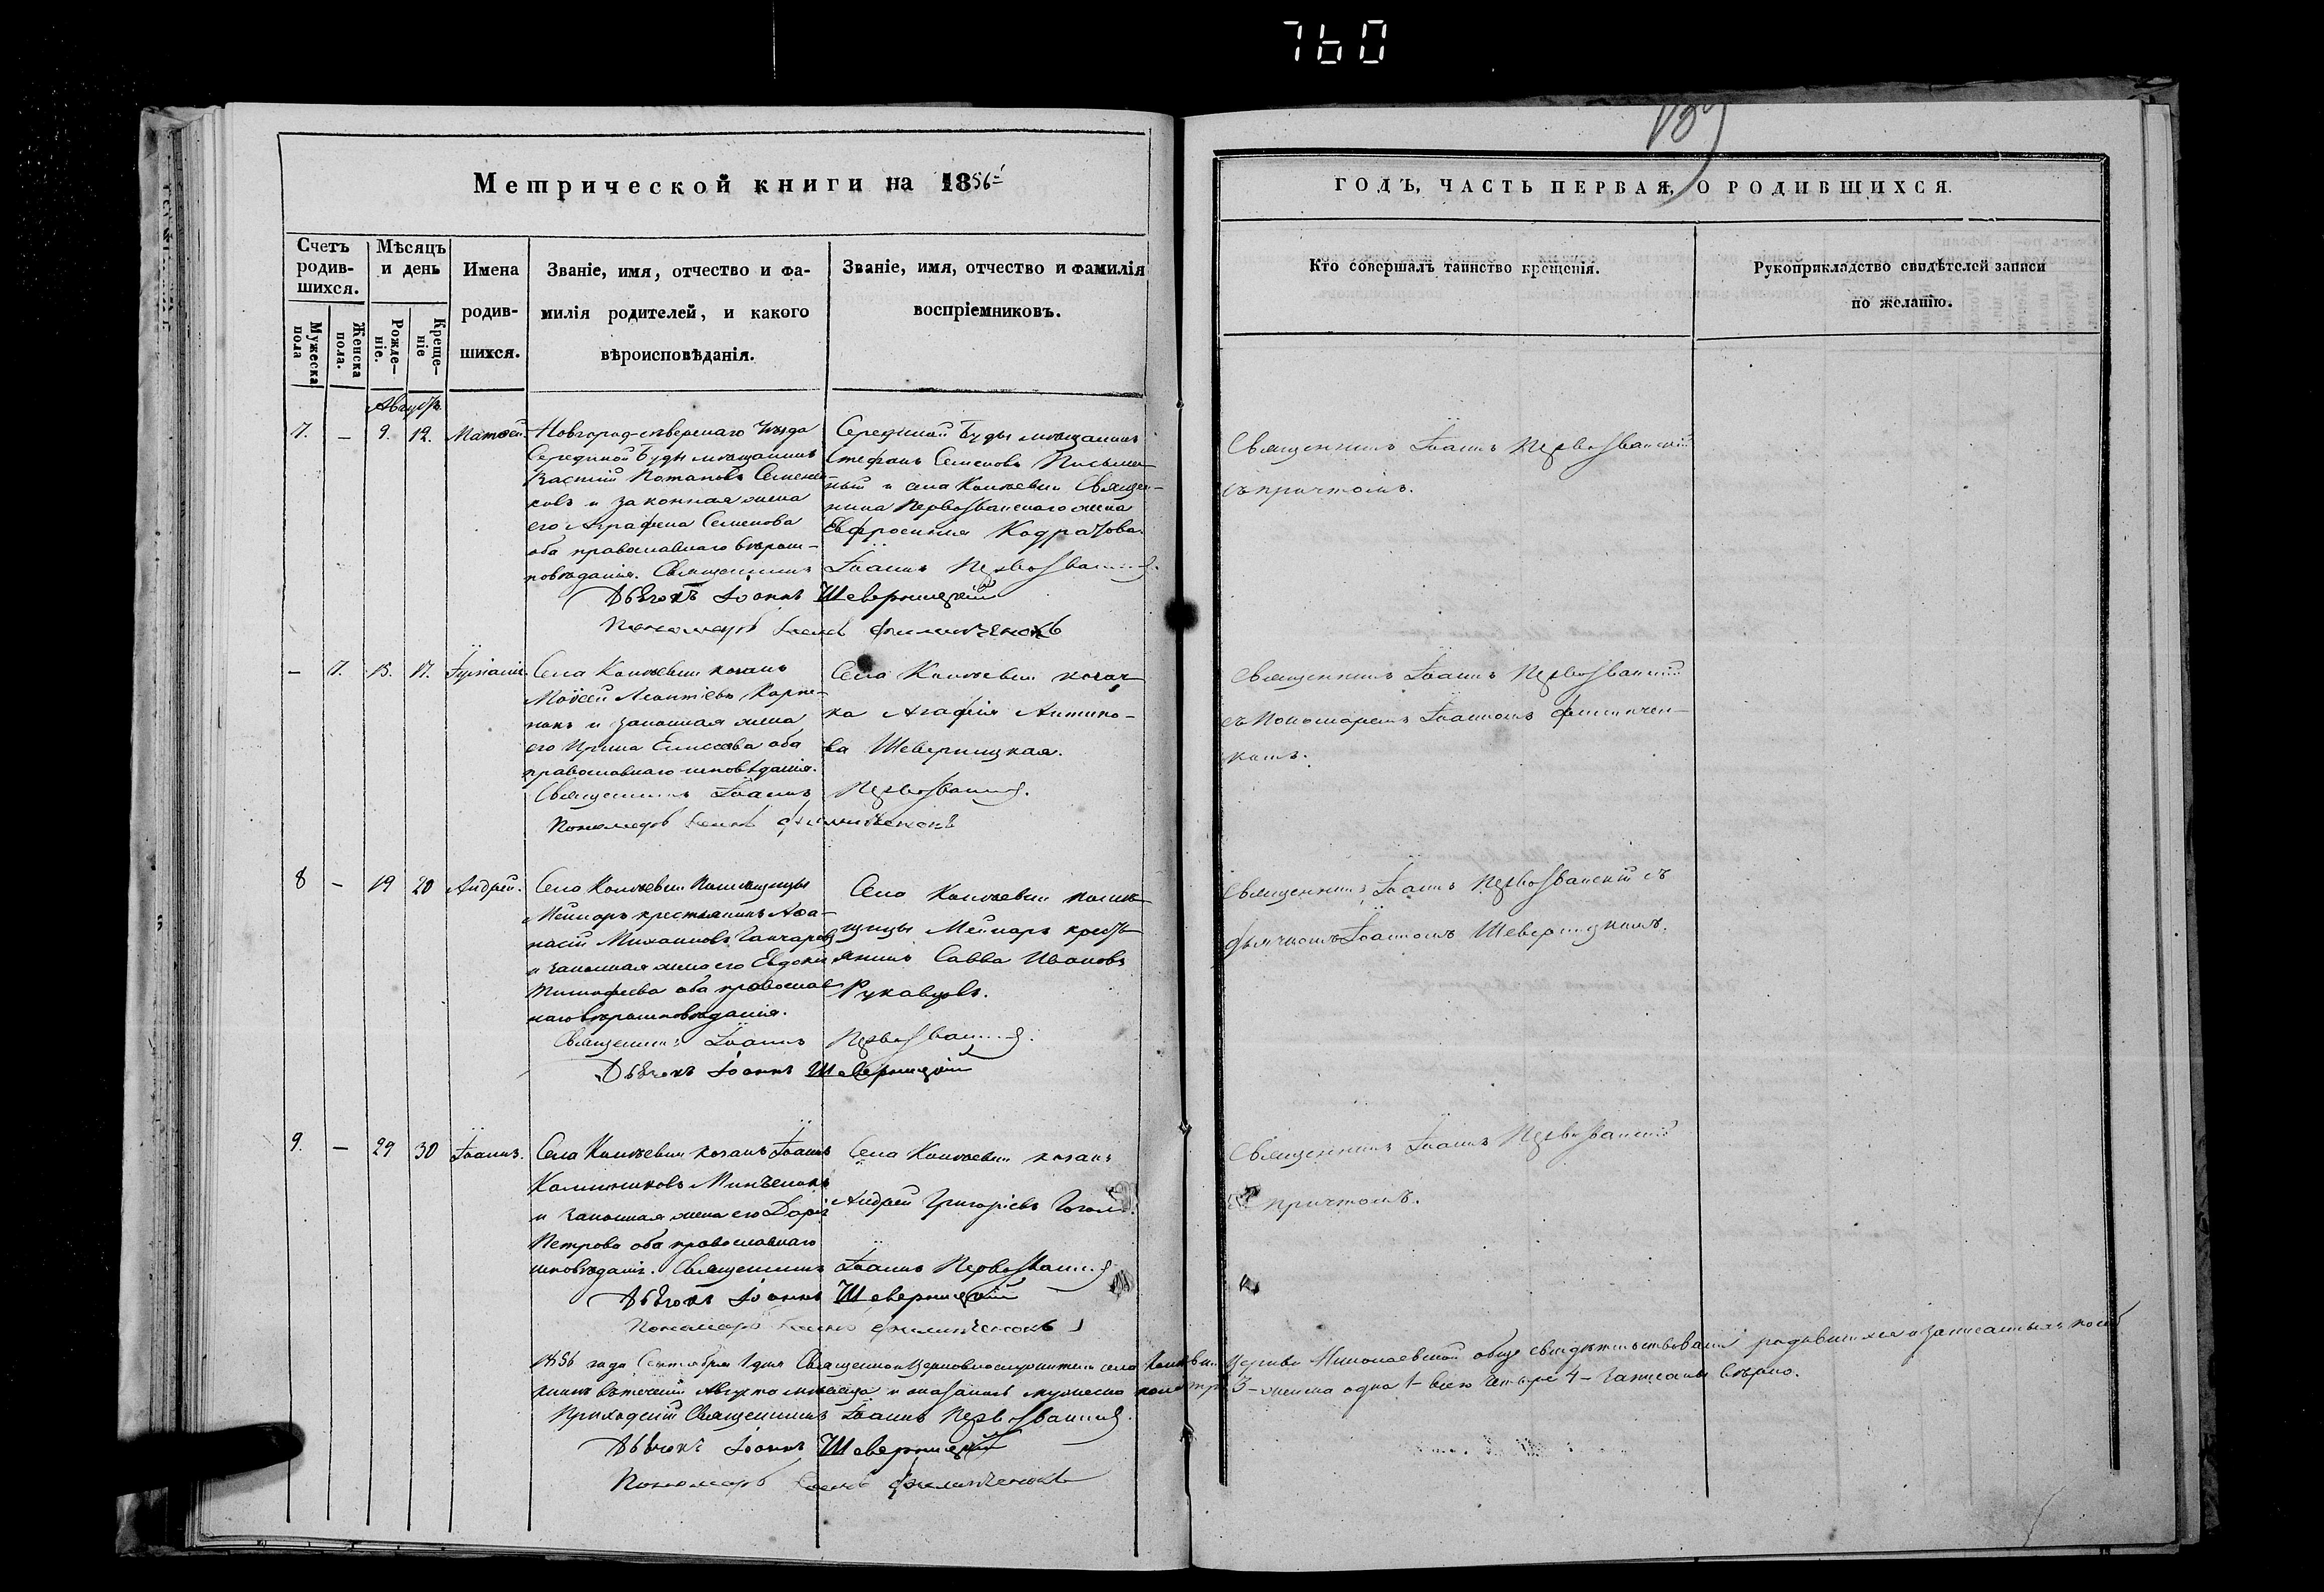 760
189
Метрической книги на 1856
ГОДЪ, ЧАСТЬ ПЕРВАЯ, О РОДИВШИХСЯ.
Счетъ родив-шихся.
Мужеска пола
Женска пола.
Мѣсяцъ и день
Рожде-ніе.
Креще-ніе
Имена
родив-
шихся.
Званіе, имя, отчество и фа-
милія родителей, и какого
вѣроисповѣданія.
Званіе, имя, отчество и фамилія
воспріемниковъ.
Кто совершалъ таинство крещенія.
Рукоприкладство свидѣтелей записи
по желанію.
Августъ
7. — 9. 12. Матѳей.
Новгород-сѣверскаго Уѣзда
Серединой Буды мѣщанинъ
Василій Потаповъ Семени-
ковъ и законная жена
его Аграфена Семенова
оба православнаго вѣроис-
повѣданія. Священникъ Іоаннъ Первозванскій.
Дьячокъ Іоаннъ Шеверницкій
Пономарь Іоаннъ Филипченокъ
Серединой Буды мѣщанинъ
Стефанъ Семеновъ Письмен-
ный и села Священ-
ника Первозванскаго жена
Евфросинія
Священникъ Іоаннъ Первозванскій
съ причтомъ.
— 7. 15. 17.
Села козакъ
Моѵсей Леонтіевъ Карпе-
нокъ и законная жена
его Ирина Елисеева оба
православнаго исповѣданія.
Священникъ Іоаннъ Первозванскій.
Пономарь Іоаннъ Филипченокъ
Села козач-
ка Агафія Антипо-
ва Шеверницкая.
Священникъ Іоаннъ Первозванскій
съ Пономаремъ Іоанномъ Филипчен-
комъ.
8 — 19 20 Андрей.
Села Помѣщицы
Мейнаръ крестьянинъ Аѳа-
насій Михаиловъ Ганчаровъ
и законная жена его Евдокія
Тимофеева оба православ
наго вѣроисповѣданія.
Священникъ Іоаннъ Первозванскій.
Дьячокъ Іоаннъ Шеверницкій
Села помѣ-
щицы Мейнаръ кресть-
янинъ Савва Ивановъ
Рукавцовъ.
Священникъ Іоаннъ Первозванскій съ
дьячкомъ Іоанномъ Шеверницкимъ.
9. — 29 30 Іоаннъ.
Села козакъ Іоаннъ
Калиниковъ Минченокъ
и законная жена его Дарія
Петрова оба православнаго
исповѣданія. Священникъ Іоаннъ Первозванскій
Дьячокъ Іоаннъ Шеверницкій
Пономарь Іоаннъ Филипченокъ
Села козакъ
Андрей Григоріевъ
Священникъ Іоаннъ Первозванскій
съ причтомъ.
1856 года Сентября 1 дня Священноцерковнослужители села Церкви Николаевской обще свидѣтельствовали родившихся и записанныхъ
въ теченіи Августа мѣсяца и оказалось мужеска пола три 3 — женска одна 1 — всего четыре 4 — записаны вѣрно.
Приходскій Священникъ Іоаннъ Первозванскій.
Дьячокъ Іоаннъ Шеверницкій
Пономарь Іоаннъ Филипченокъ